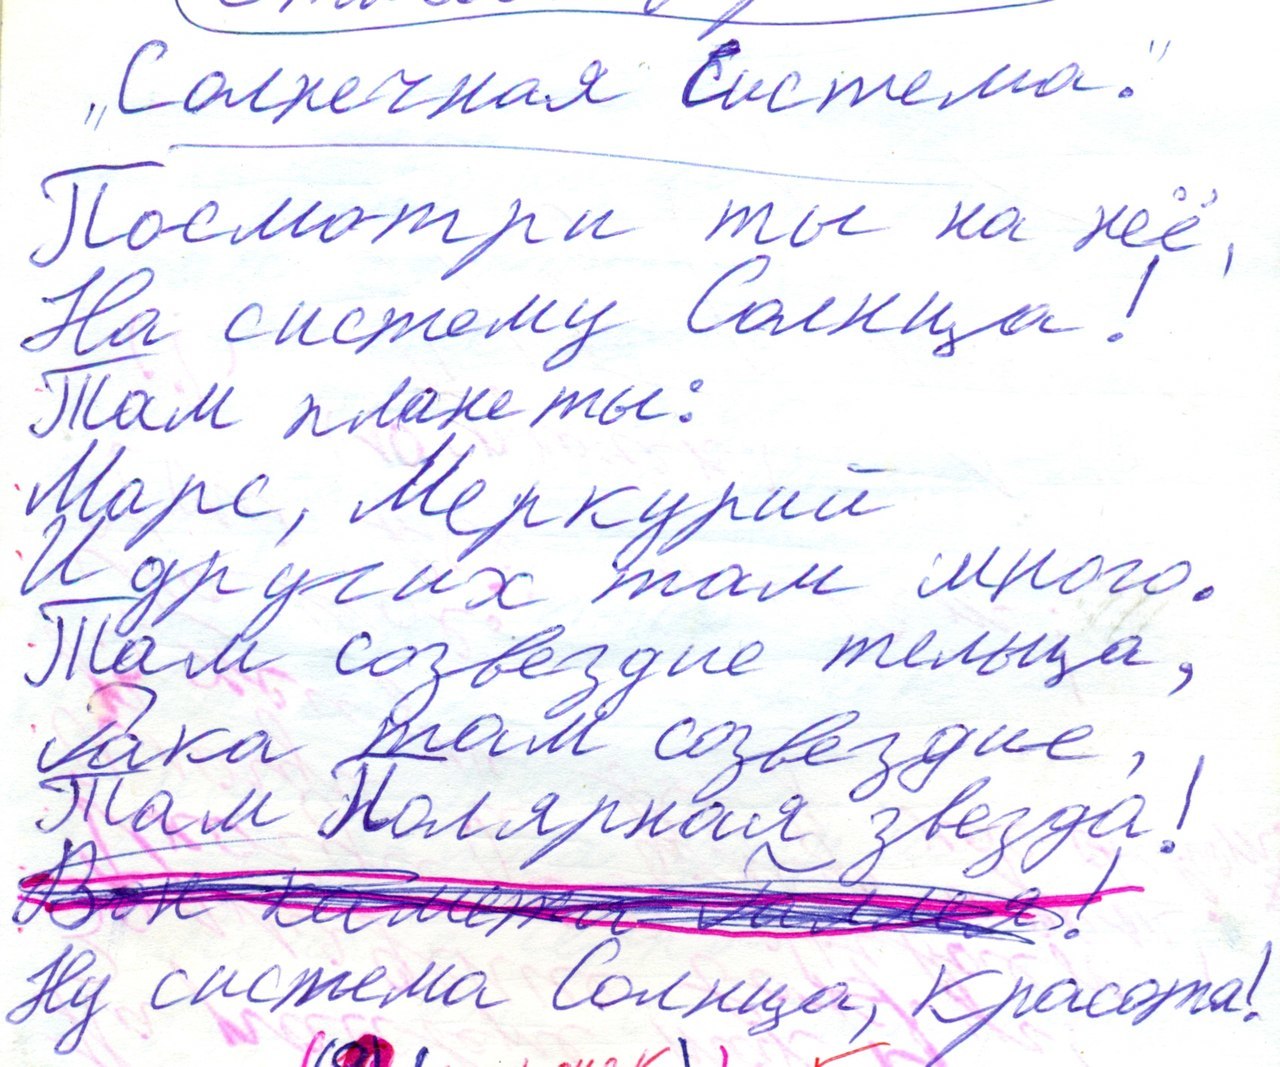 „Солнечная Система."
Посмотри ты на неё,
На систему Солнца!
Там планеты:
Марс, Меркурий
И других там много.
Там созвездие тельца,
Рака там созвездие,
Там Полярная звезда!
Вон комета !
Ну система Солнца, Красота!